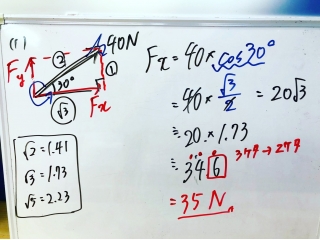 (1)
② 40N
Fy
30°
①
√3
Fx
√2=1.41
√3=1.73
√5=2.23
Fx = 40 × cos30°
= 40 × √3/2 = 20√3
≒ 20 × 1.73
≒ 34.6
= 35 N